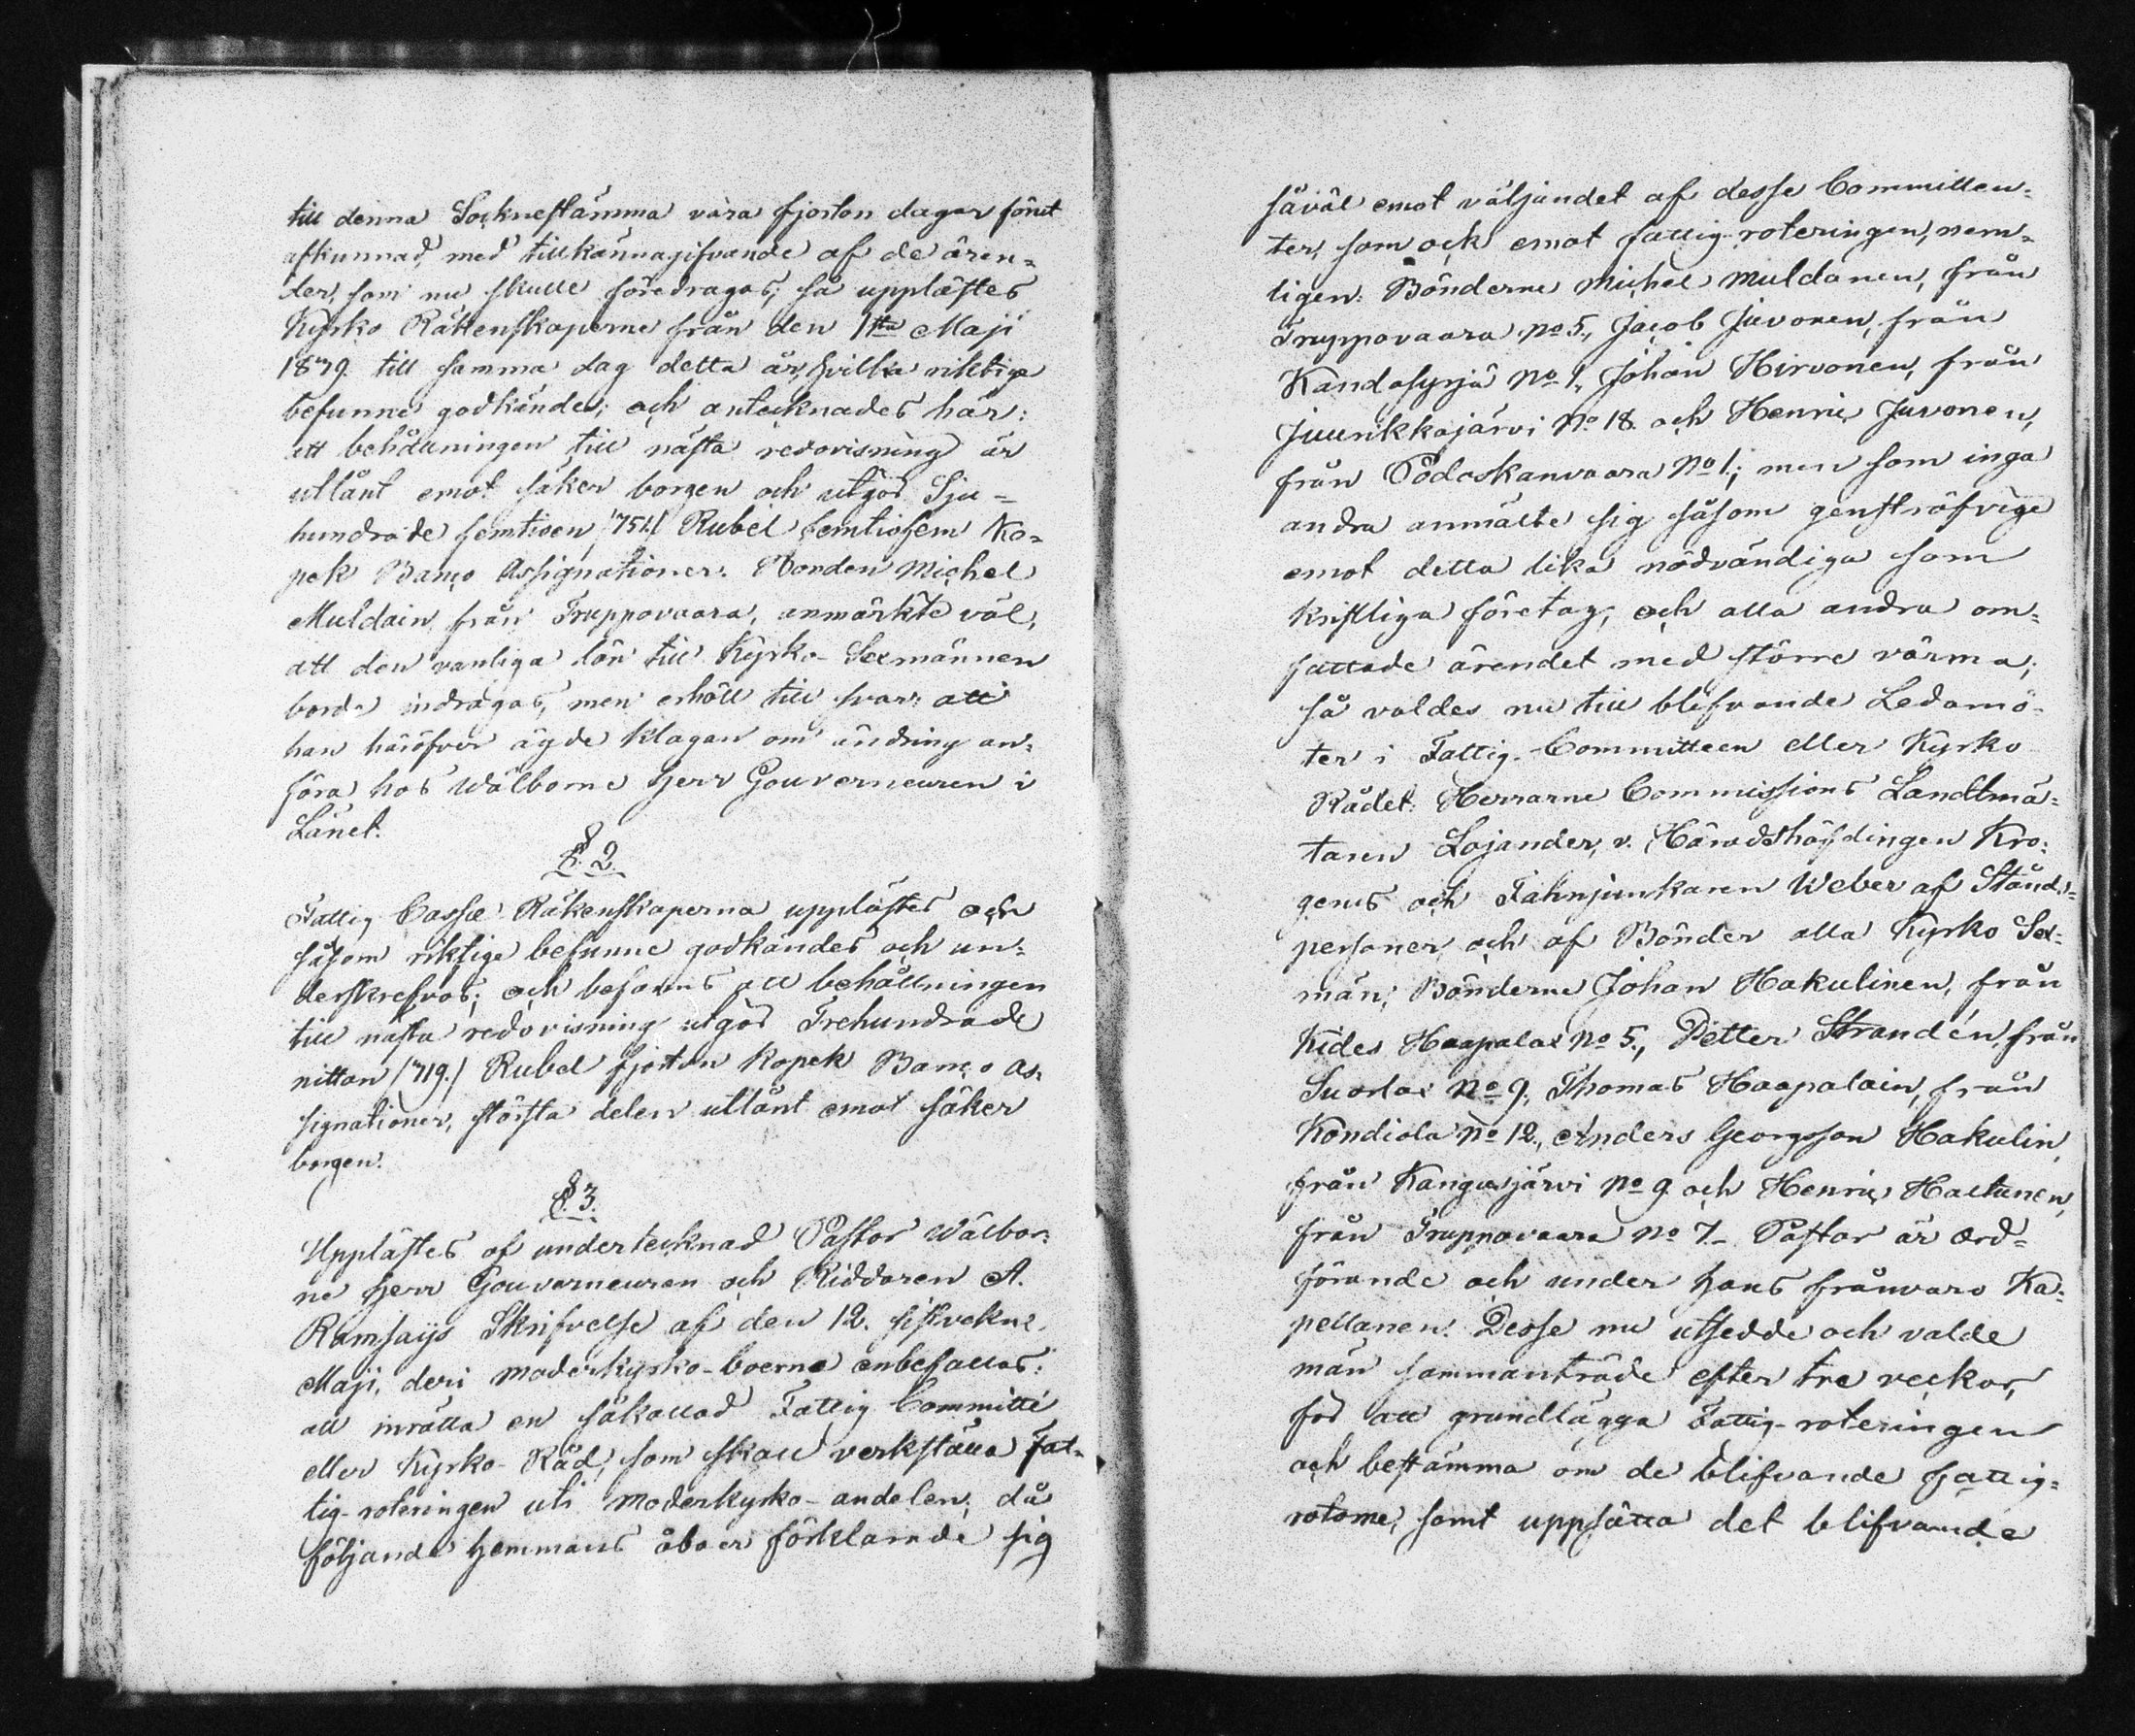 till denna Sockneſtämma vara fjorton dagar förut
afkunnad, med tillkännagifvande af de ären=
der, som nu skulle föredragas; så uppläſtes
Kyrko Räkenskaperne från den 1sta Maji
1839 till samma dag detta år, hvilka riktiga
befunne godkändes; och antecknades här:
att behållningen till näſta redovisning är
utlånt emot säker borgen och utgör Sju=
hundrade femtioen /751./ Rubel femtiofem Ko=
pek Banco Aſsignationer. Bonden Michel
Muldain från Truppovaara, anmärkte väl,
att den vanliga lön till Kyrko-Sexmännen
borde indragas, men erhöll till svar: att
han häröfver ägde klagan om ändring an=
föra hos Wälborne Herr Gouverneuren i
Länet.
§. 2.
Fattig Caſsæ Räkenskaperna uppläſtes och
såsom riktige befunne godkändes och un=
derskrefvos; och befanns att behållningen
till näſta redovisning utgör Trehundrade
nitton /319./ Rubel fjorton kopek Banco As=
signationer, ſtörſta delen utlånt emot säker
borgen.
§. 3.
Uppläſtes af undertecknad Paſtor Wälbor=
ne Herr Gouverneuren och Riddaren A.
Ramsays Skrifvelse af den 12. siſtvekne
Maji, deri moderkyrko-boerne anbefallas:
att inrätta en såkallad Fattig Committé
eller Kyrko-Råd, som skall verkſtälla Fat=
tig-roteringen uti moderkyrko-andelen; då
följande Hemmans åboer förklarade sig
såväl emot väljandet af deſse Committen=
ter, som ock emot fattig-roteringen, nem=
ligen: Bönderne Michel Muldänen, från
Truppovaara No 5., Jacob Juvonen, från
Kandosyrjä No 1., Johan Hirvonen, från
Juurikkajärvi No 18. och Henric Juvonen,
från Podoskanvaara No 1.; men som inga
andra anmälte sig såsom genſträfvige
emot detta lika nödvändiga som
kriſtliga företag, och alla andra om=
fattade ärendet med ſtörre värma;
så valdes nu till blifvande Ledamö=
ter i Fattig-Committeen eller Kyrko
Rådet: Herrarne Commiſsions Landtmä=
taren Lojander, v. Häradshöfdingen Kro=
gerus och Fahnjunkaren Weber af Stånds=
personer, och af Bönder alla Kyrko Sex=
män; Bönderne Johan Hakulinen, från
Kides Haapalax No 5., Petter Strandén från
Suorlax No 9. Thomas Haapalain, från
Kondiola No 12., Anders Georgsson Hakulin,
från Kangusjärvi No 9 och Henric Haltunen,
från Truppovaara No 7._ Paſtor är ord=
förande och under hans frånvaro Ka=
pellanen. Desse nu utsedde och valde
män sammanträde efter tre veckor,
för att grundlägga Fattig-roteringen
och beſtämma om de blifvande fattig=
rotarne, samt uppsätta det blifvande